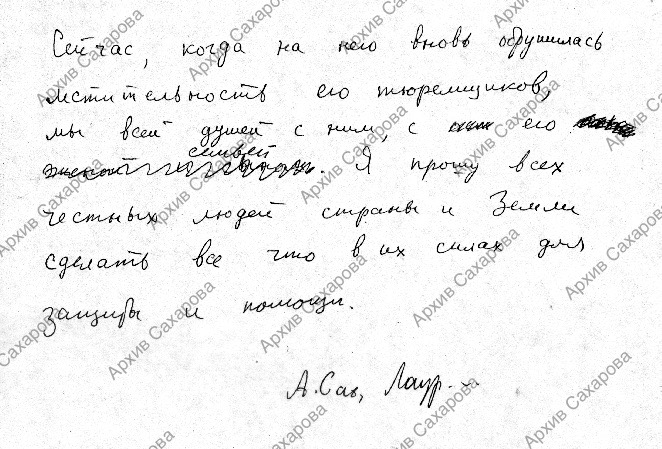 Сейчас, когда на него вновь обрушилась
мстительность его тюремщиков,
мы всей душей с ним, с его
семьей
. Я прошу всех
честных людей страны и Земли
сделать все что в их силах для
защиты и помощи.
А. Сах, Лаур.
Архив Сахарова